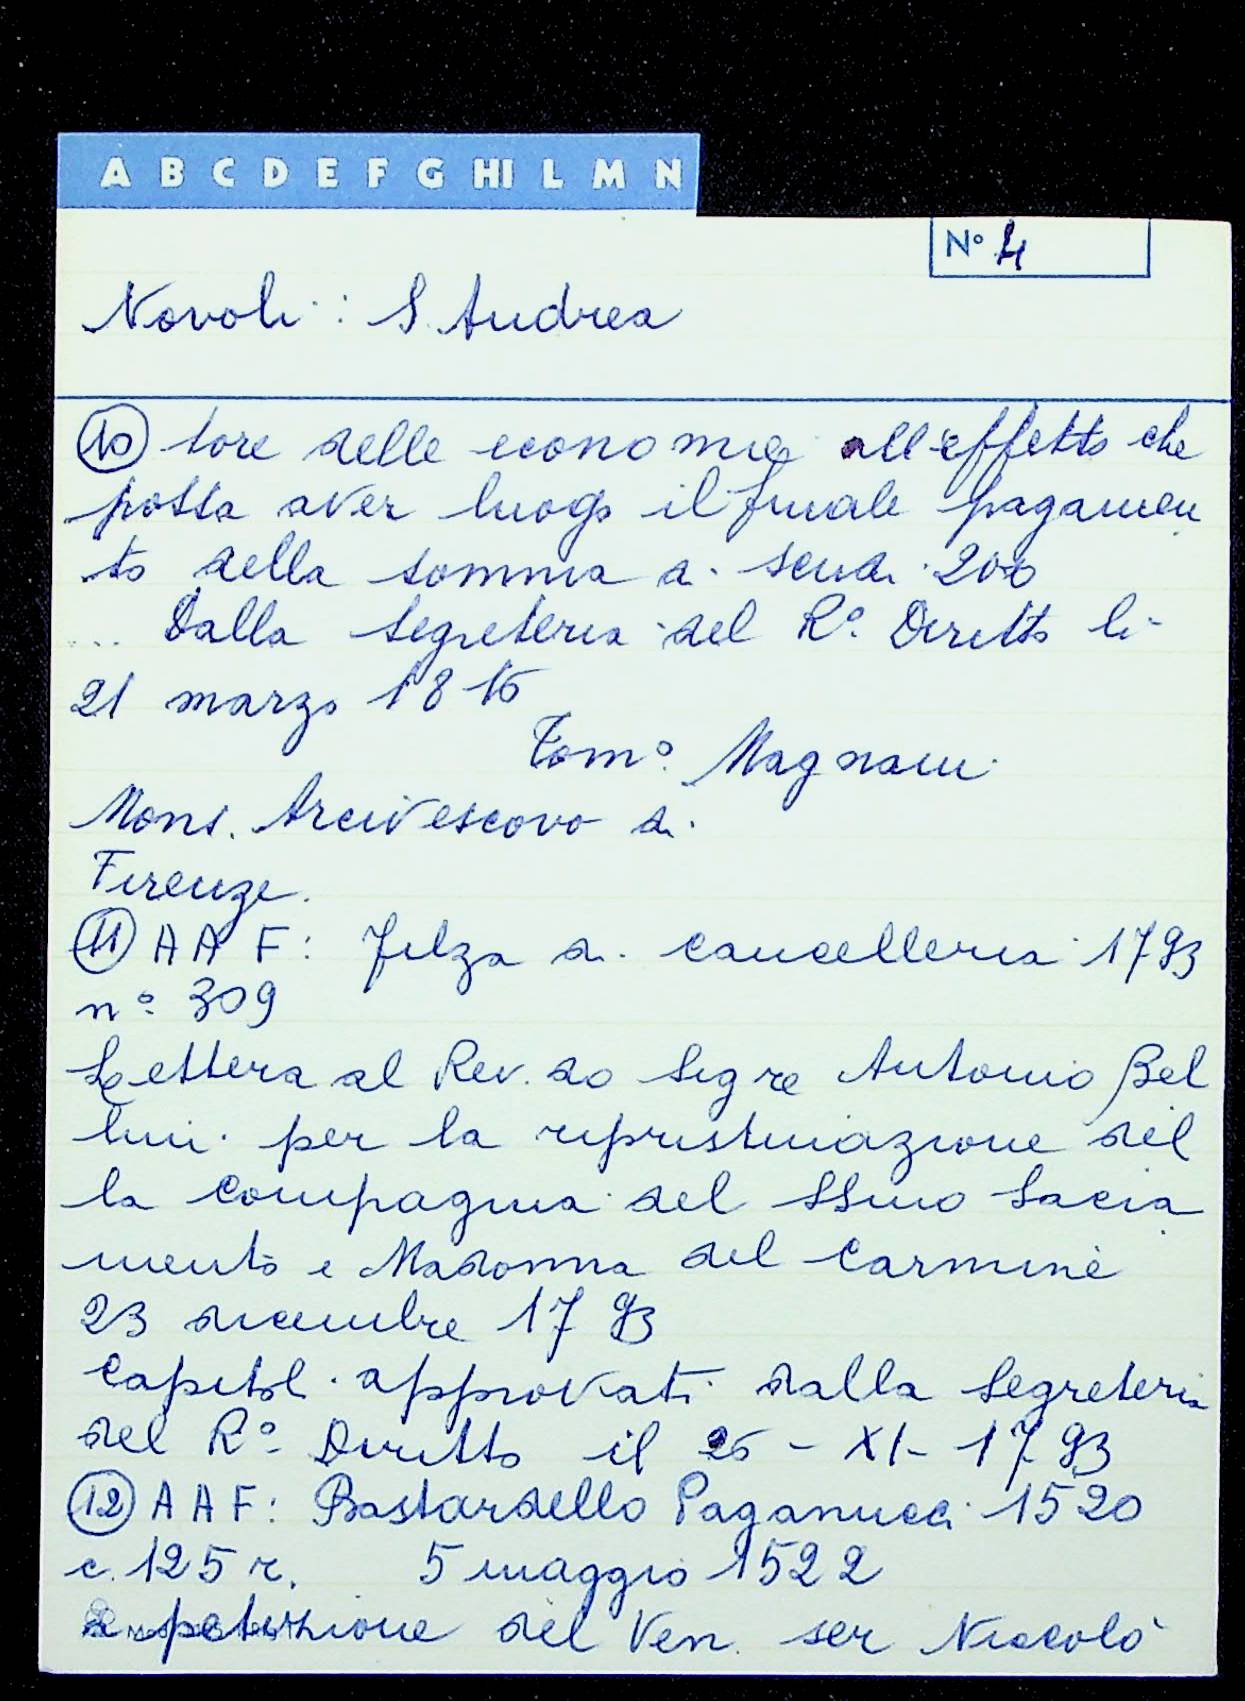 A B C D E F G HI L M N
Nº 4
Novoli: S. Andrea
(10) tore delle economie all'effetto che
possa aver luogo il finale pagamen
to della somma di scudi 200
... Dalla Segreteria del Rº. Diritto li
21 marzo 1816
Tomº. Magnani
Mons. Arcivescovo di
Firenze.
(11) A A F: Filza di cancelleria 1793
nº 309
Lettera al Rev.do Sigre Antonio Bel
lini per la ripristinazione del
la compagnia del SSmo Sacra
mento e Madonna del Carmine
23 dicembre 1793
Capitoli approvati dalla Segreteria
del Rº Diritto il 26 - XI - 1793
(12) A A F: Bastardello Paganucci 1520
c. 125 r. 5 maggio 1522
a petizione del Ven. ser Niccolò